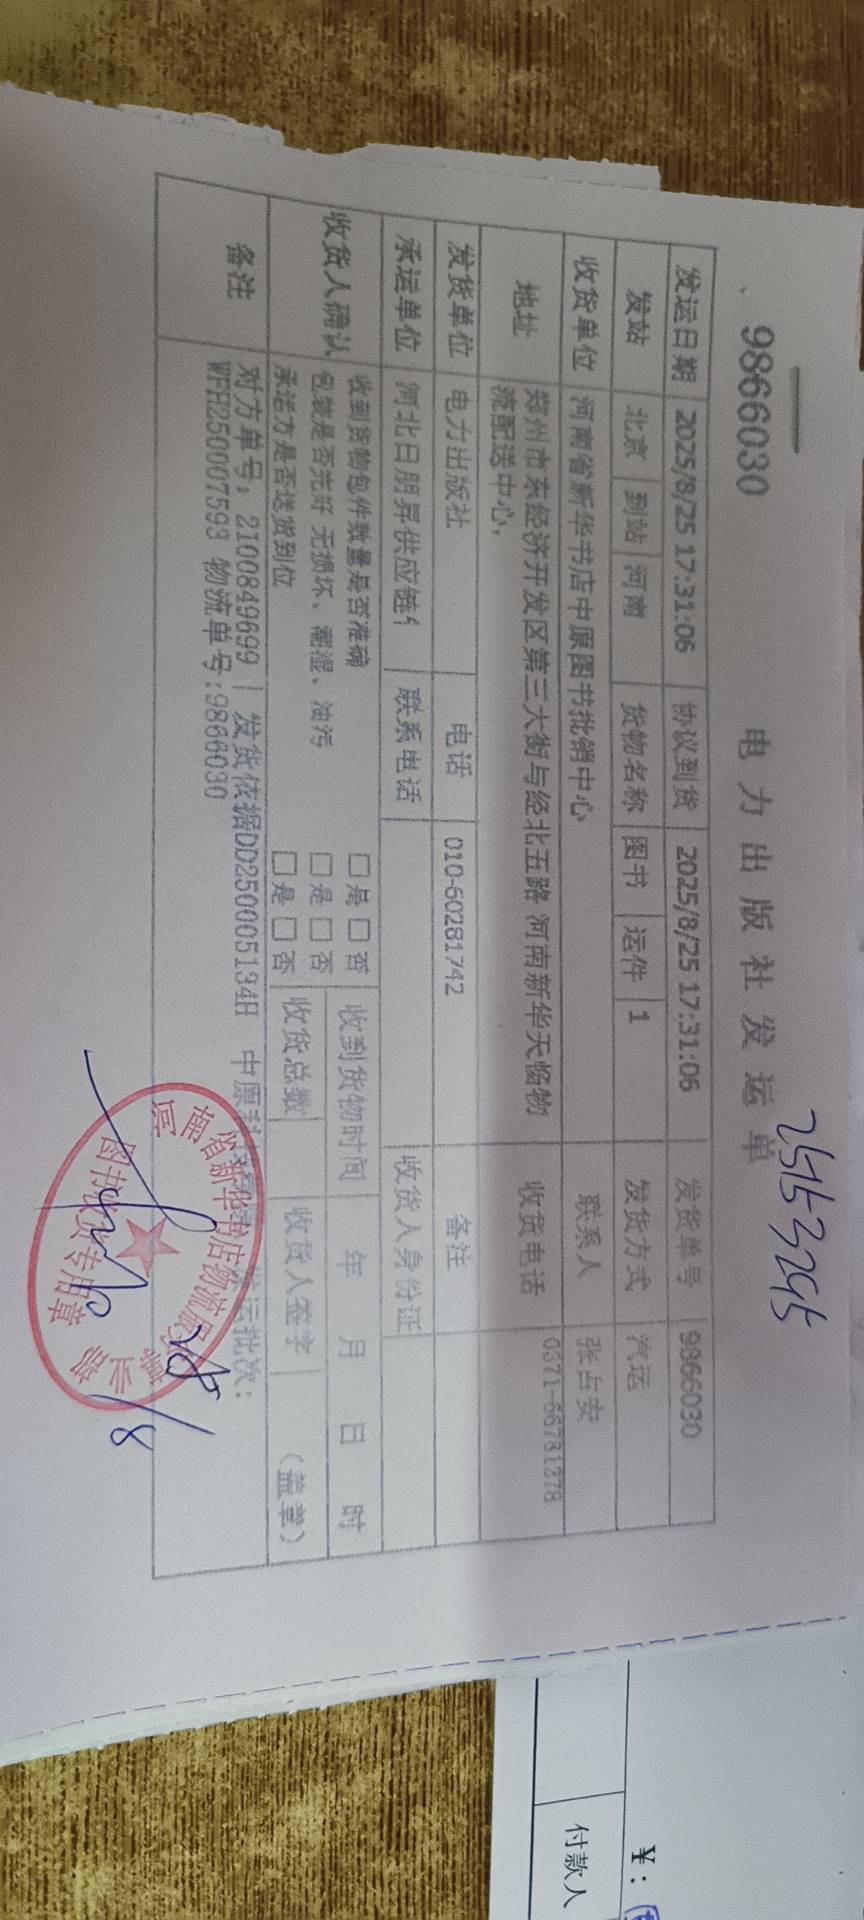 25153295
9866030
电力出版社发运单
发运日期 2025/8/25 17:31:06 协议到货 2025/8/25 17:31:06 发货单号 9866030
发站 北京 到站 河南 货物名称 图书 运件 1 发货方式 汽运
收货单位 河南省新华书店中原图书批销中心 联系人 张占安
地址 郑州市东经济开发区第三大街与经北五路 河南新华天畅物流配送中心, 收货电话 0371-66781278
发货单位 电力出版社 电话 010-60281742 备注
承运单位 河北日朋昇供应链 联系电话 收货人身份证
收货人确认 收到货物包件数量是否准确 □是 □否 收到货物时间 年 月 日 时
包装是否完好 无损坏、潮湿、油污 □是 □否
承运方是否送货到位 □是 □否 收货总数 收货人签字 (盖章)
备注 对方单号: 2100849699 | 发货依据DD250005134H 中原 发运批次:
WFH250007593 物流单号:9866030
河南省新华书店物流服务事业部
图书收货专用章
28/8
¥:
付款人